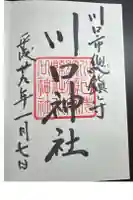 川口市総鎮守
川口神社
平成廿八年一月七日